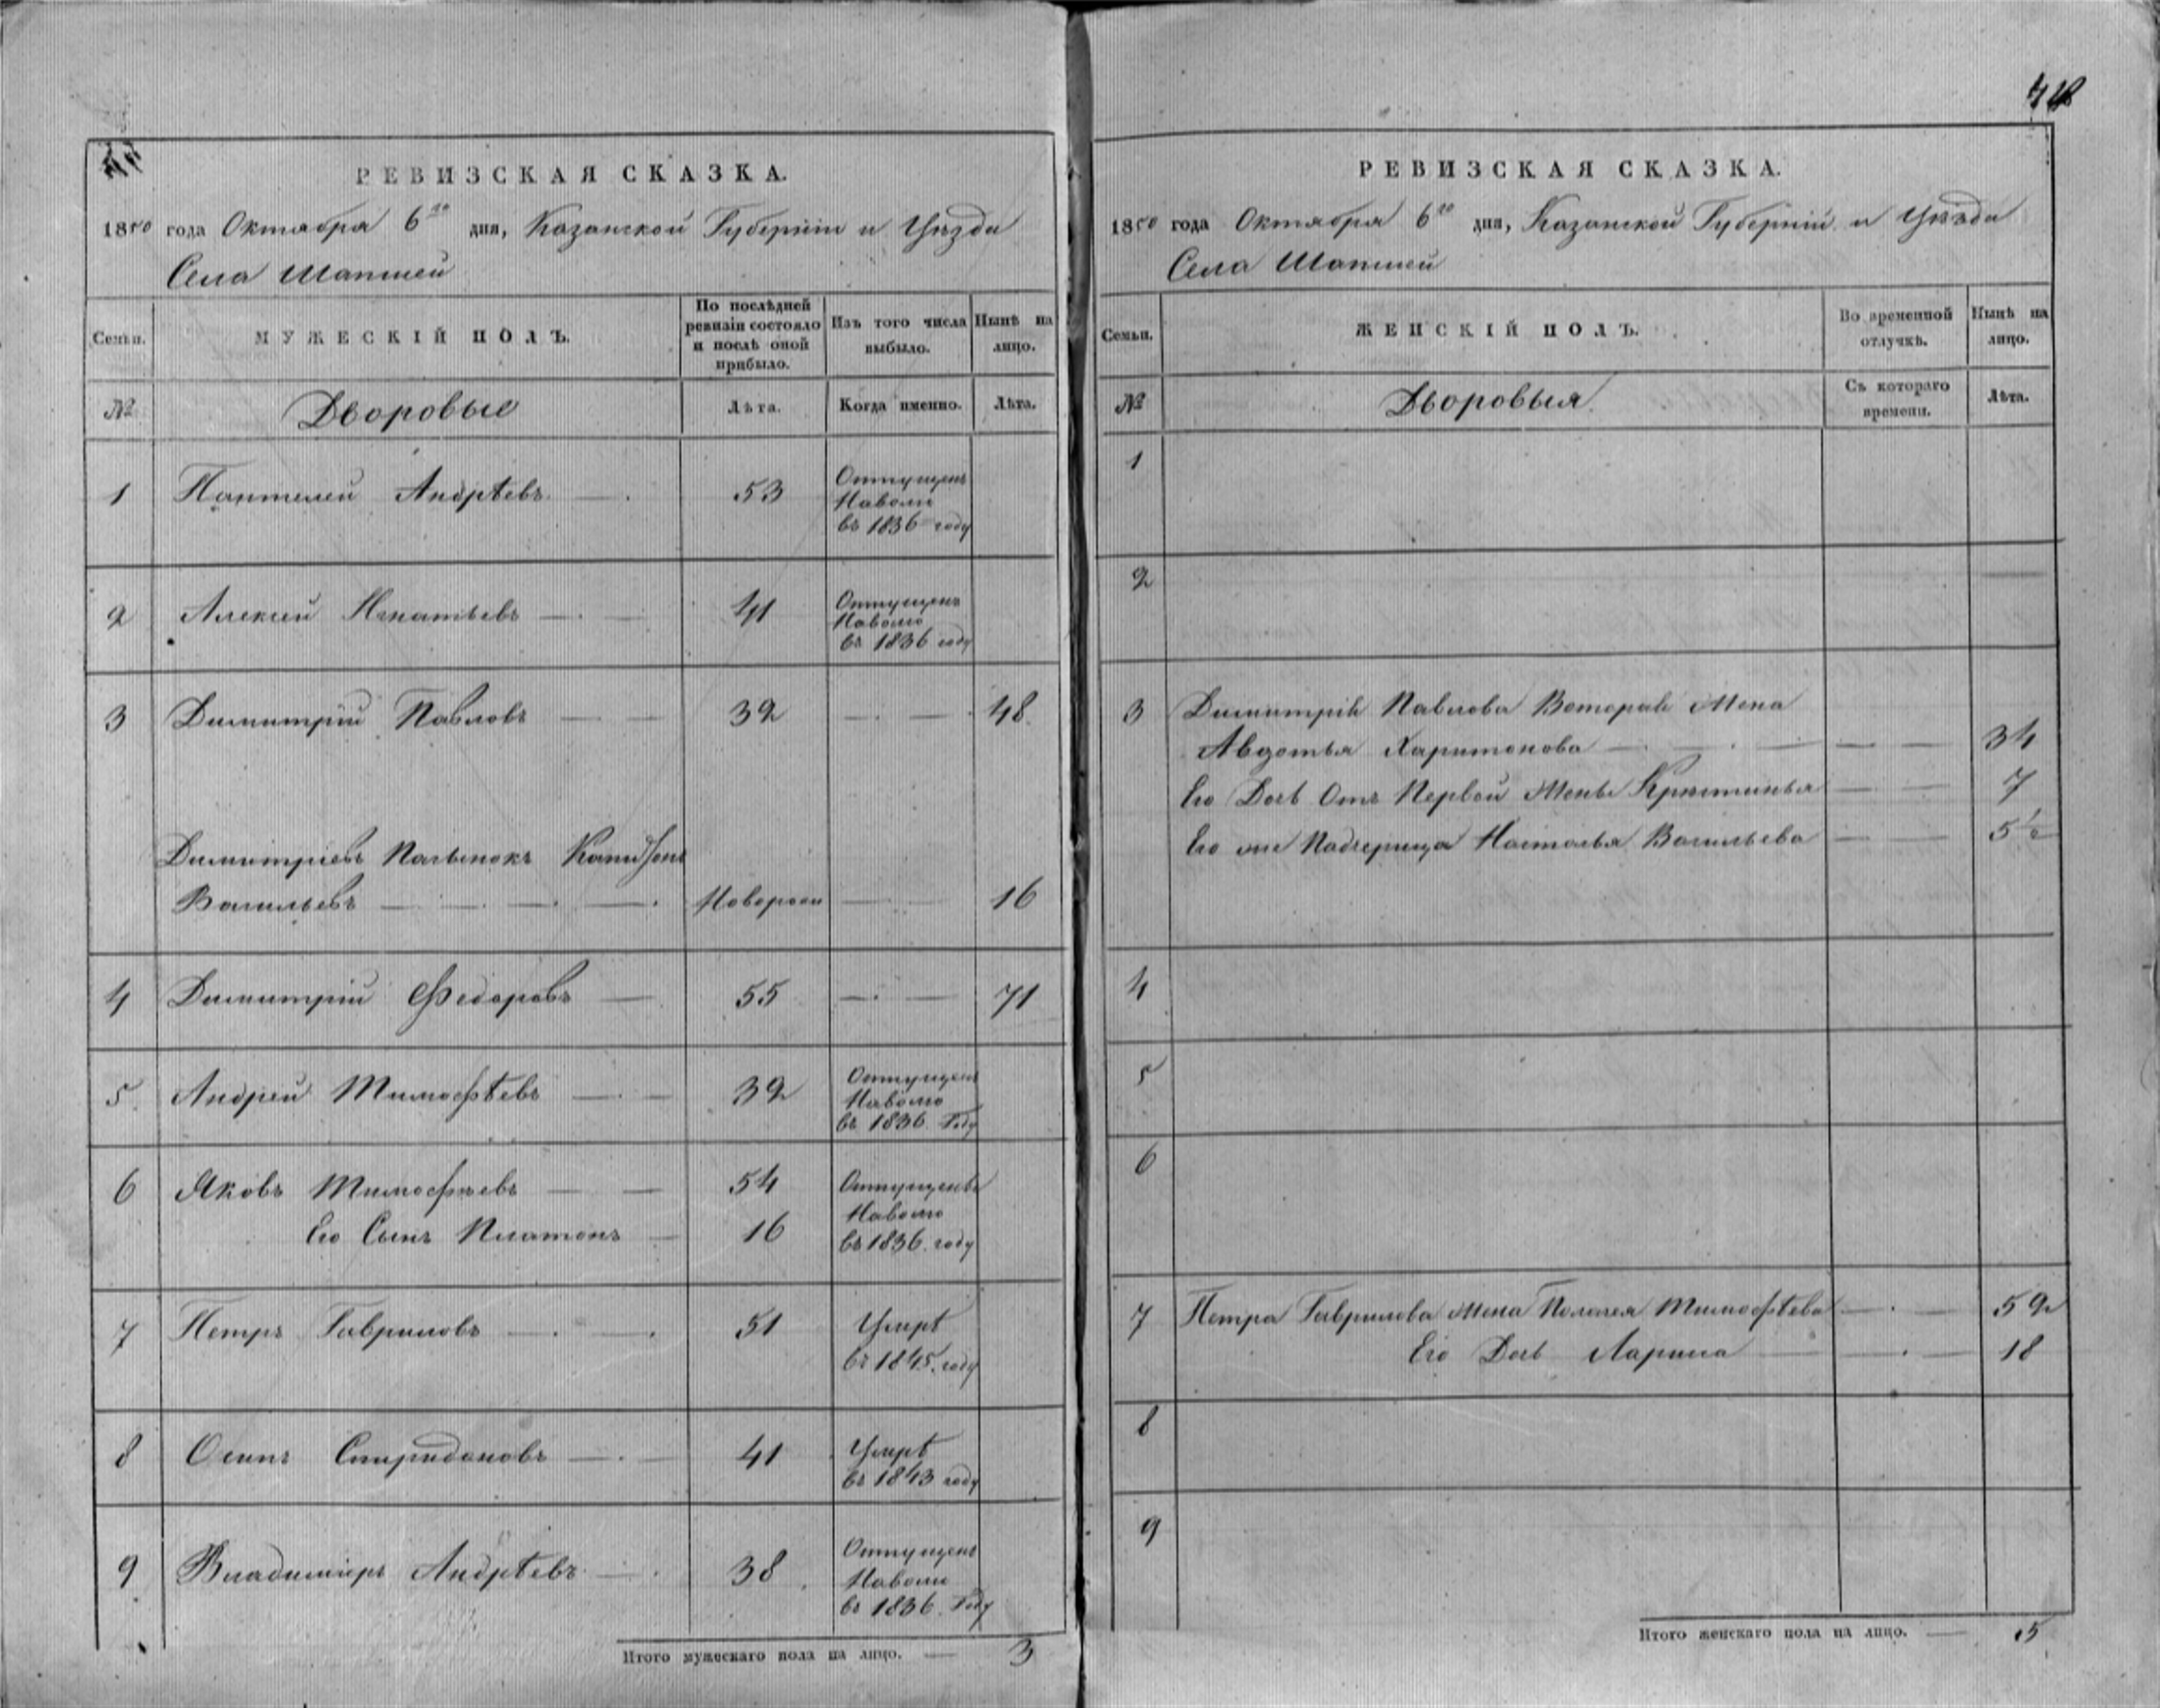 РЕВИЗСКАЯ СКАЗКА.
1850 года Октября 6го дня, Казанской Губернiи и Уѣзда
Села Шапшей
Семьи.
МУЖЕСКІЙ ПОЛЪ.
По послѣдней ревизіи состояло и послѣ оной прибыло.
Изъ того числа выбыло.
Нынѣ на лицо.
№
Дворовые
Лѣта.
Когда именно.
Лѣта.
1 Пантелей Андрѣевъ 53 Отпущенъ
Наволю
въ 1836 году
2 Алексей Игнатьевъ 41 Отпущенъ
Наволю
въ 1836 году
3 Димитрiй Павловъ 32 48.
Димитрiевъ Пасынокъ
Васильевъ 16
4 Димитрiй Федоровъ 55 71
5. Андрей Тимофѣевъ 32 Отпущенъ
Наволю
въ 1836 Году
6 Яковъ Тимофѣевъ 54 Отпущены
Наволю
Его Сынъ Платонъ 16 въ 1836. году
7 Петръ Гавриловъ 51 Умрѣ
въ 1845. году
8 Осипъ Спиридоновъ 41 Умрѣ
въ 1843 году
9 Владимiръ Андрѣевъ 38 Отпущенъ
Наволю
въ 1836. Году
Итого мужескаго пола на лицо. 3
РЕВИЗСКАЯ СКАЗКА.
1850 года Октября 6го дня, Казанской Губернiй и Уѣзда
Села Шапшей
Семьи.
ЖЕНСКІЙ ПОЛЪ.
Во временной отлучкѣ.
Нынѣ на лицо.
№
Дворовыя
Съ котораго времени.
Лѣта.
1
2
3 Димитрiя Павлова Вторая Жена
Авдотья Харитонова 34
Его Дочь Отъ Первой Жены 7
Его же Падчерица Настасья Васильева 5½
4
5
6
7 Петра Гаврилова Жена Пелагея Тимофѣева 52
Его Дочь Лариса 18
8
9
Итого женскаго пола на лицо. 5